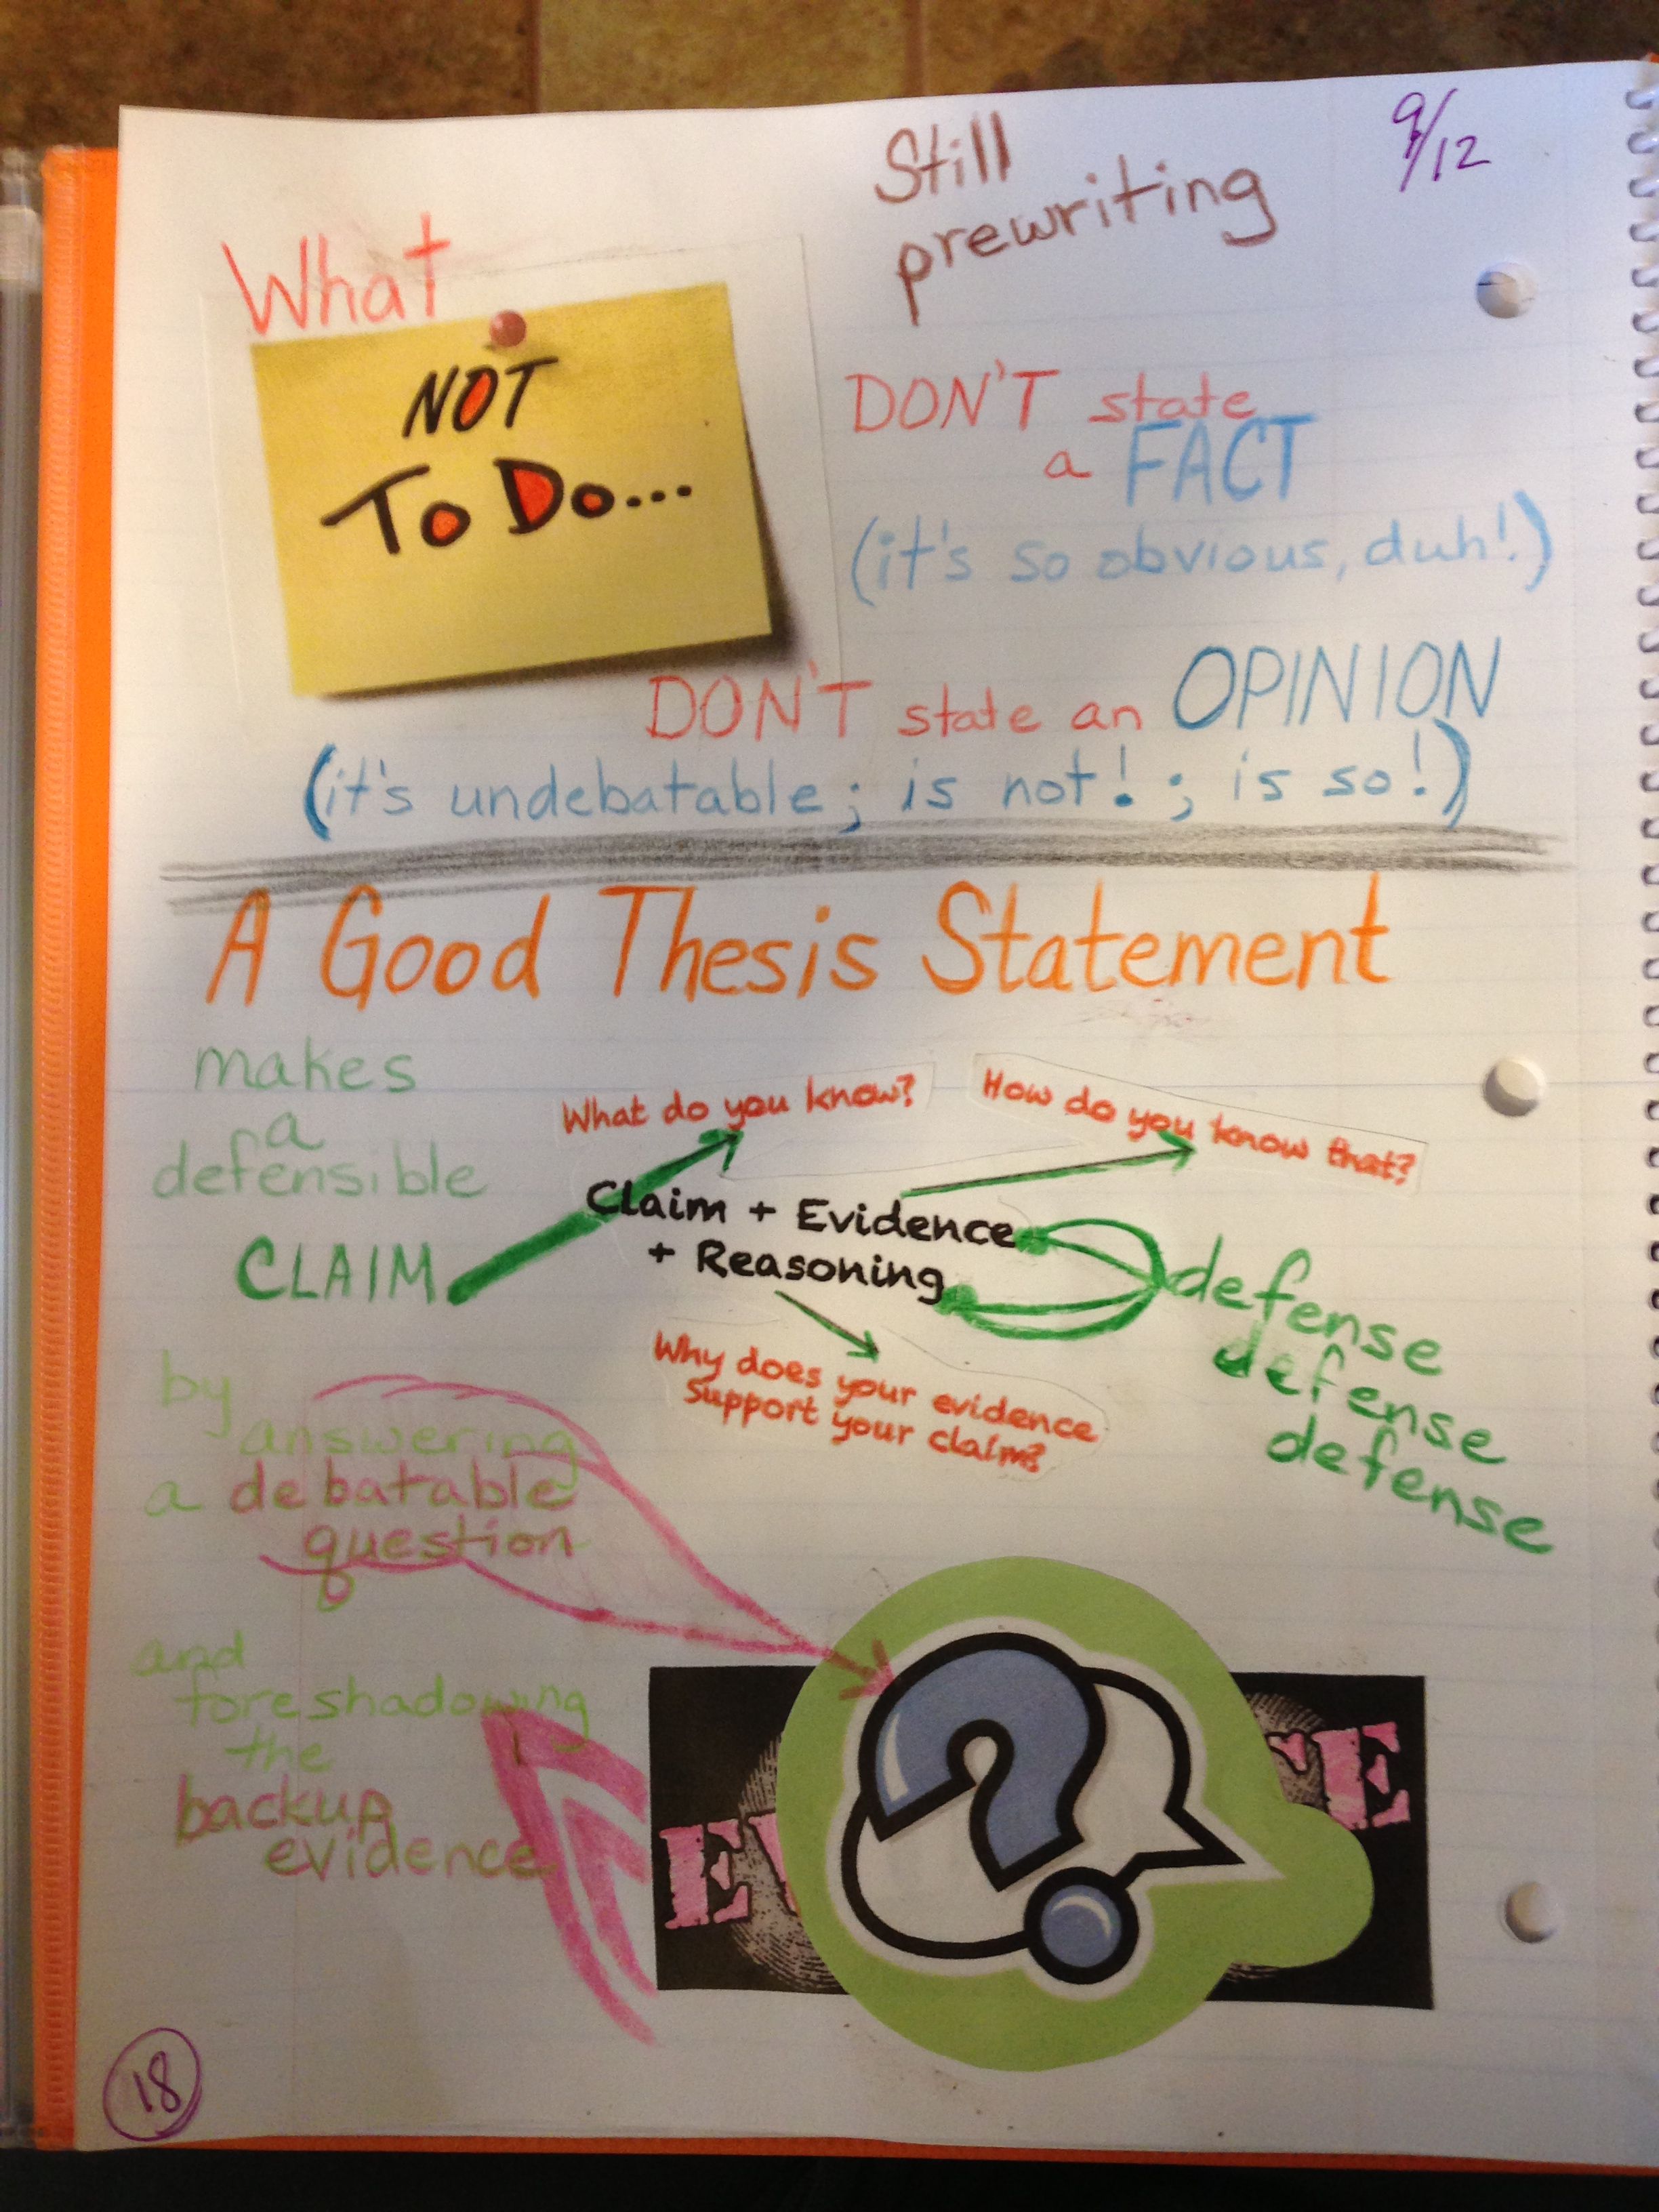 9/12
Still
prewriting
What
NOT
To Do...
DON'T state
a FACT
(it's so obvious, duh!)
DON'T state an OPINION
(it's undebatable; is not! ; is so!)
A Good Thesis Statement
makes
a
defensible
CLAIM
What do you know?
How do you know that?
Claim + Evidence
+ Reasoning
Why does your evidence
support your claim?
defense
defense
defense
by
answering
a debatable
question
and
foreshadowing
the
backup
evidence
18